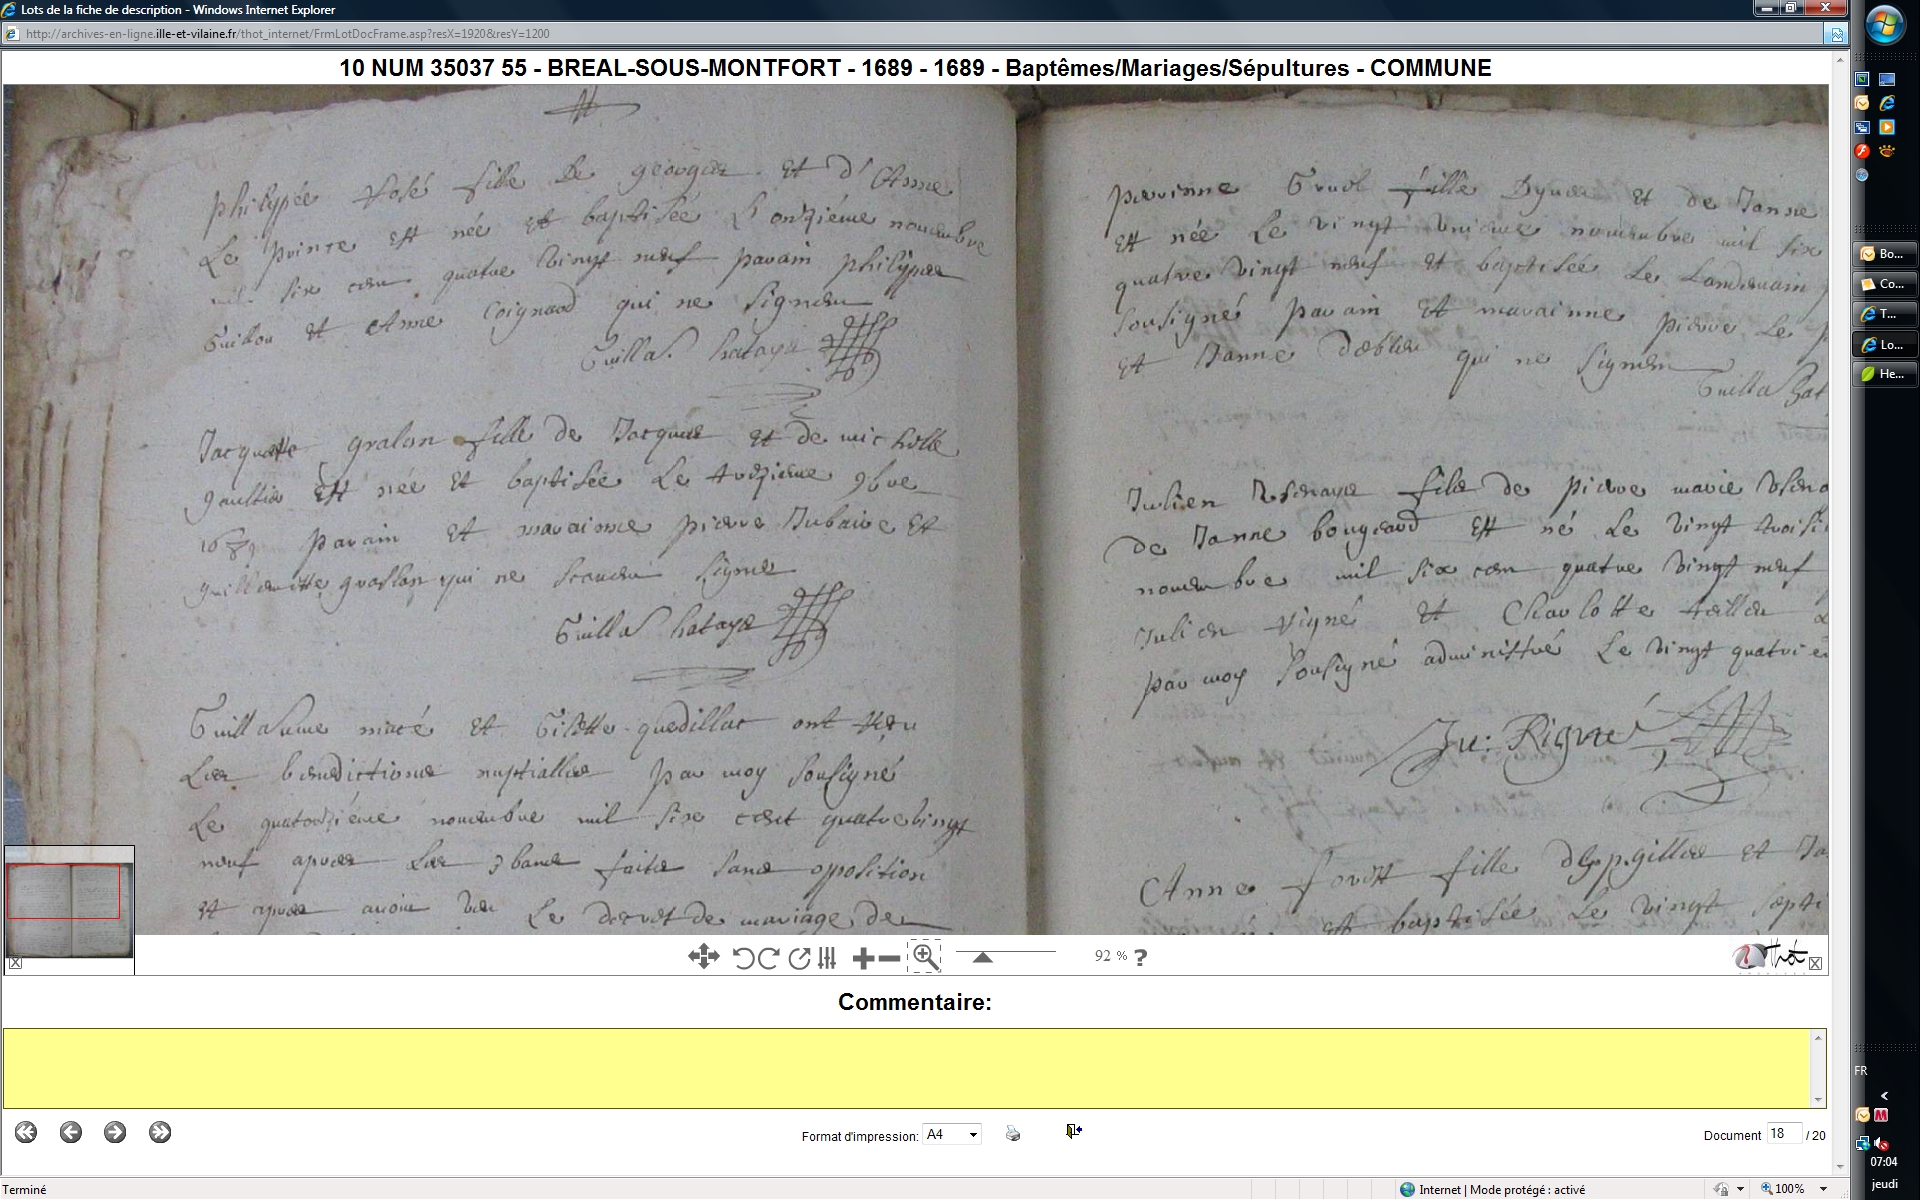 Lots de la fiche de description - Windows Internet Explorer
http://archives-en-ligne.ille-et-vilaine.fr/thot_internet/FrmLotDocFrame.asp?resX=1920&resY=1200
10 NUM 35037 55 - BREAL-SOUS-MONTFORT - 1689 - 1689 - Baptêmes/Mariages/Sépultures - COMMUNE
philyppée fille de georges et d'Anne
Le prince est née et baptisée L onziéme novembre
mil six cen quatre vingt neuf parain philyppes
Guillou et Anne Coignard qui ne signen
Guilla. hataye
Jacquette gralan fille de Jacques et de michelle
gaultier est née et baptisée Le trezieme 9bre
1689 parain et maraine pierre Jubaire et
guillemette graslan qui ne scaven signer
Guilla hataye
Guillaume macé et Gilette quedillac ont
Les benedictions nuptialles par moy sousigné
Le quatorziéme novembre mil six cent quatre vingt
neuf apres Les 3 bans faits sans opposition
et apres avoir veu Le decret de mariage de
perrinne Gruel fille et de Janne
est née Le vingt unieme novembre mil six
quatre vingt neuf et baptisée Le Landemain
sousigné parain et maraine pierre Le
et Janne qui ne signen
Guilla hat
Julien fils de pierre marie
de Janne bougeard est né Le vingt troisi
novembre mil six cen quatre vingt neuf
Julien vigné et Charlotte
par moy sousigné administré Le vingt quatrie
Ju: Rigné
Anne fille gilles et Ja
est baptisée Le vingt septi
92 % ?
Thot
Commentaire:
Format d'impression: A4
Document 18 / 20
Terminé
Internet | Mode protégé : activé
100%
Bo...
Co...
T...
Lo...
He...
FR
07:04
jeudi